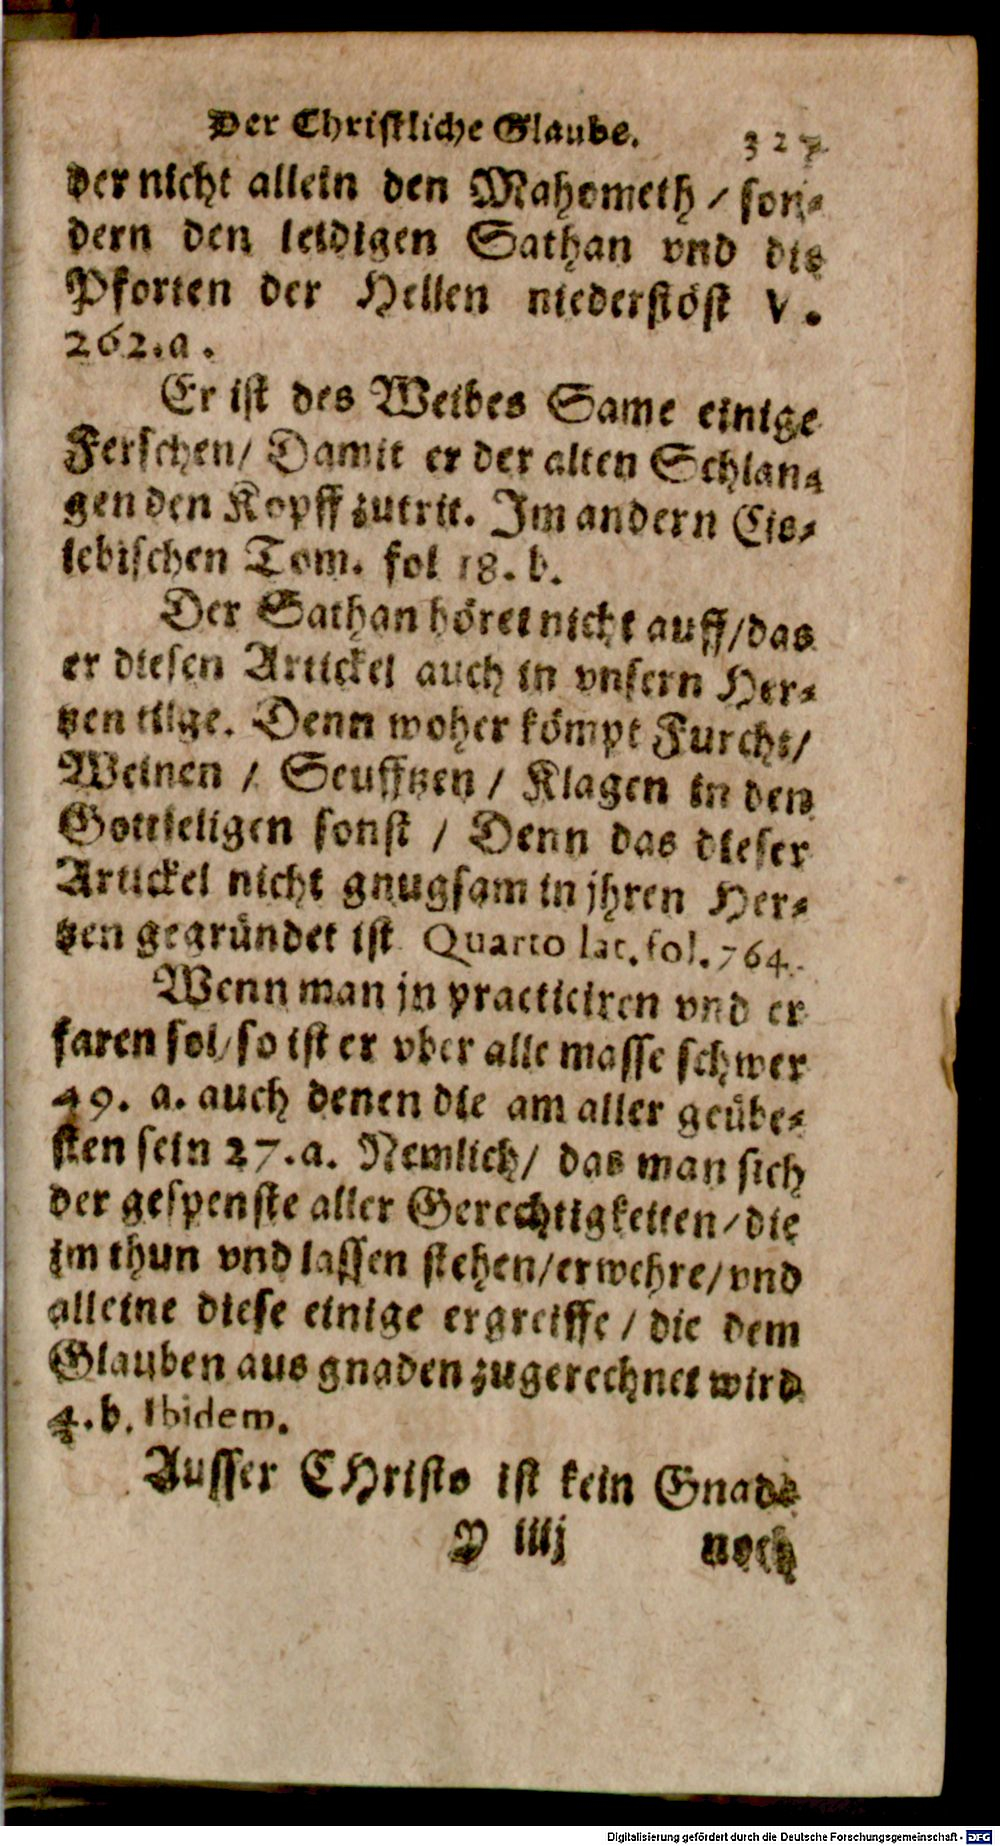 Der Christliche Glaube. 327
der nicht allein den Mahometh / son-
dern den leidigen Sathan vnd die
Pforten der Hellen niederstöst V.
262.a.
Er ist des Weibes Same einige
Ferschen/ Damit er der alten Schlan-
gen den Kopff zutrit. Im andern Eis-
lebischen Tom. fol 18. b.
Der Sathan höret nicht auff/das
er diesen Artickel auch in vnsern Her-
tzen tilge. Denn woher kömpt Furcht/
Weinen / Seufftzen / Klagen in den
Gottseligen sonst / Denn das dieser
Artickel nicht gnugsam in jhren Her-
tzen gegründet ist Quarto lat. fol. 764.
Wenn man jn practiciren vnd er
faren sol/so ist er vber alle masse schwer
49. a. auch denen die am aller geübe-
sten sein 27.a. Nemlich/ das man sich
der gespenste aller Gerechtigkeiten/die
im thun vnd lassen stehen/erwehre/vnd
alleine diese einige ergreiffe / die dem
Glauben aus gnaden zugerechnet wird
4. b. Ibidem.
Ausser CHristo ist kein Gnade
Y iiij noch
Digitalisierung gefördert durch die Deutsche Forschungsgemeinschaft - DFG